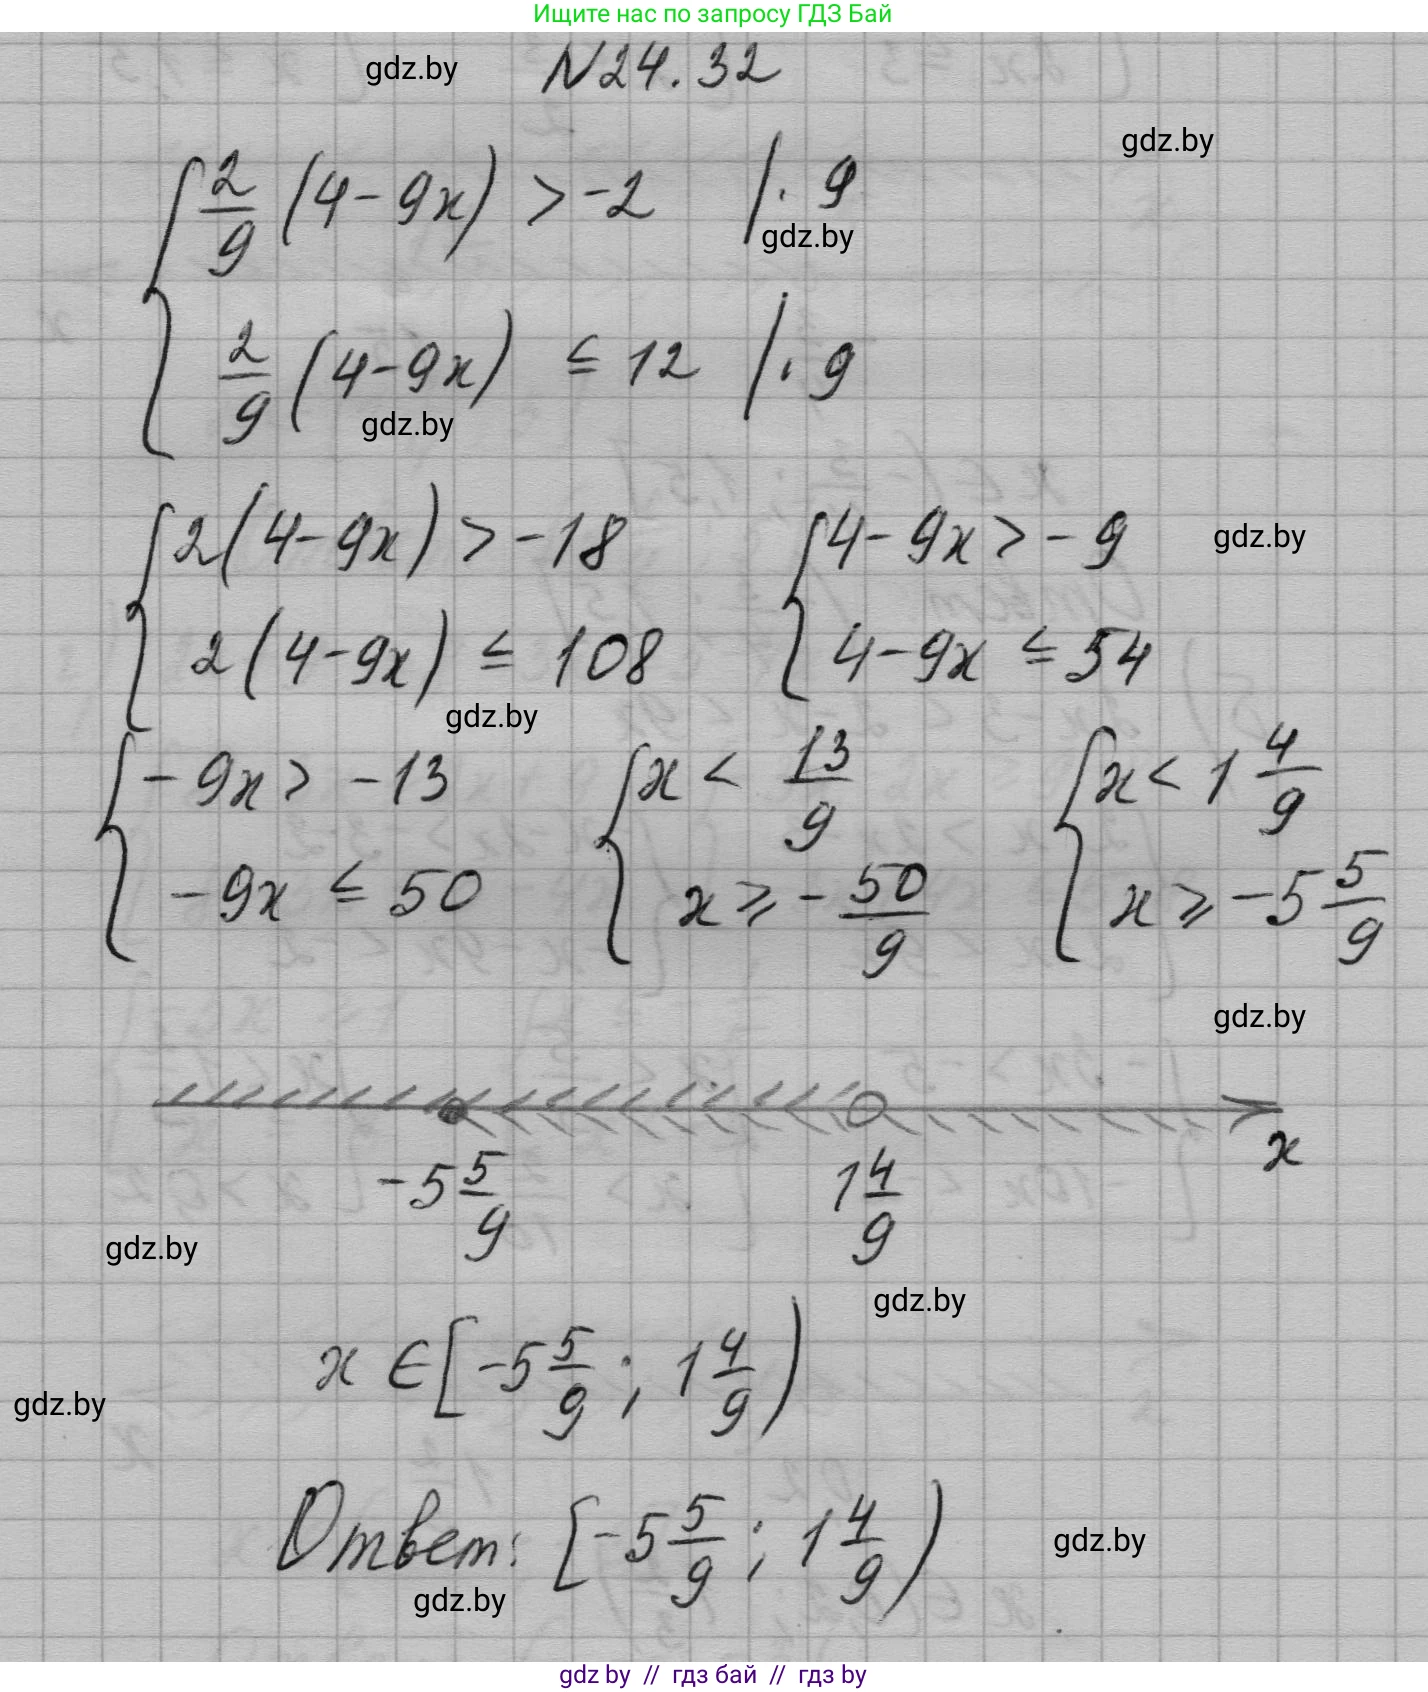 Ищите нас по запросу ГДЗ Бай
gdz.by N24.32
gdz.by
{ 2/9 (4-9x) > -2 |· 9
gdz.by
2/9 (4-9x) ≤ 12 |· 9
gdz.by
{ 2(4-9x) > -18 { 4-9x > -9 gdz.by
2(4-9x) ≤ 108 4-9x ≤ 54
gdz.by
{ -9x > -13 { x < 13/9 { x < 1 4/9
-9x ≤ 50 x ⩾ -50/9 x ⩾ -5 5/9
gdz.by
x
-5 5/9 1 4/9
gdz.by
gdz.by
x ∈ [-5 5/9 ; 1 4/9)
gdz.by
Ответ: [-5 5/9 ; 1 4/9)
gdz.by
gdz.by
gdz by // гдз бай // гдз by